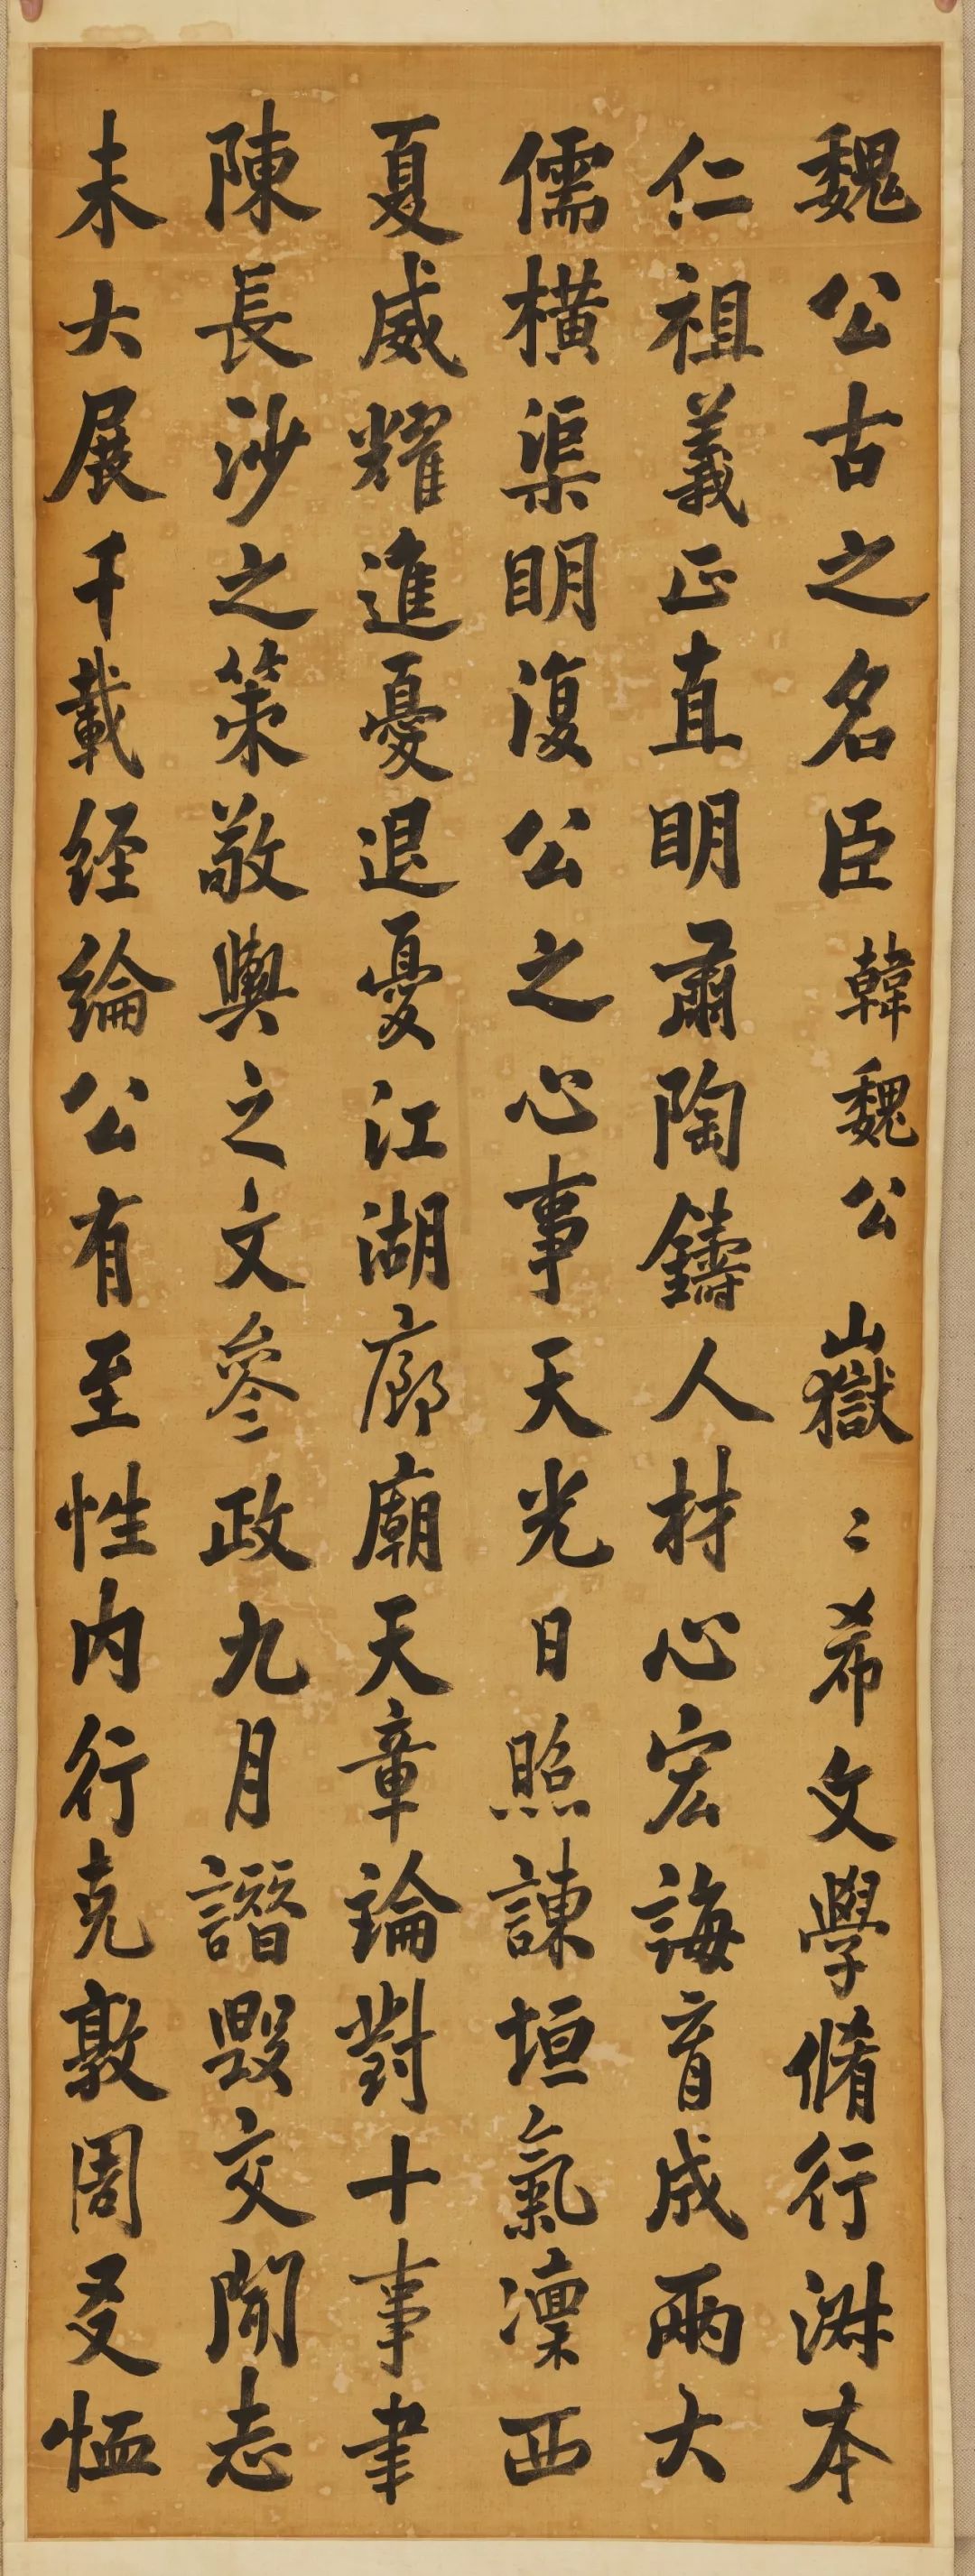 魏公古之名臣韓魏公山嶽〻希文學脩行淵本
仁祖義正直明肅陶鑄人材心宏誨育成兩大
儒橫渠明復公之心事天光日照諫垣氣凜西
夏威耀進憂退憂江湖廊廟天章論對十事聿
陳長沙之策敬輿之文參政九月譖毀交閒志
未大展千載経綸公有至性內行克敦周爰恤